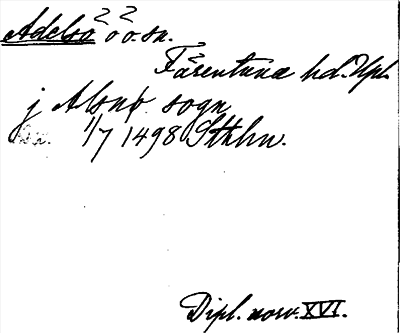 Adelsö öo. sn.
Färentuna hd. Upl.
j Alsnø sogn
1/7 1498 Sthlm.
Dipl. norv. XVI.